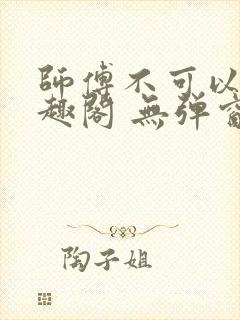 師傅不可以
趣閣 無彈窗
陶子姐